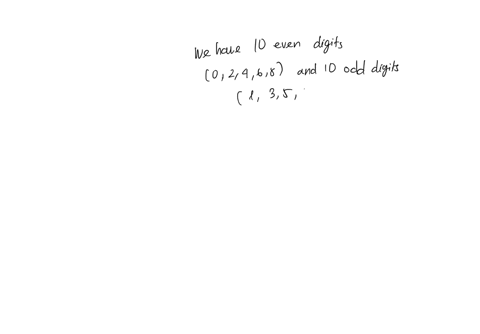 We have 10 even digits
(0, 2, 4, 6, 8) and 10 odd digits
( 1, 3, 5,